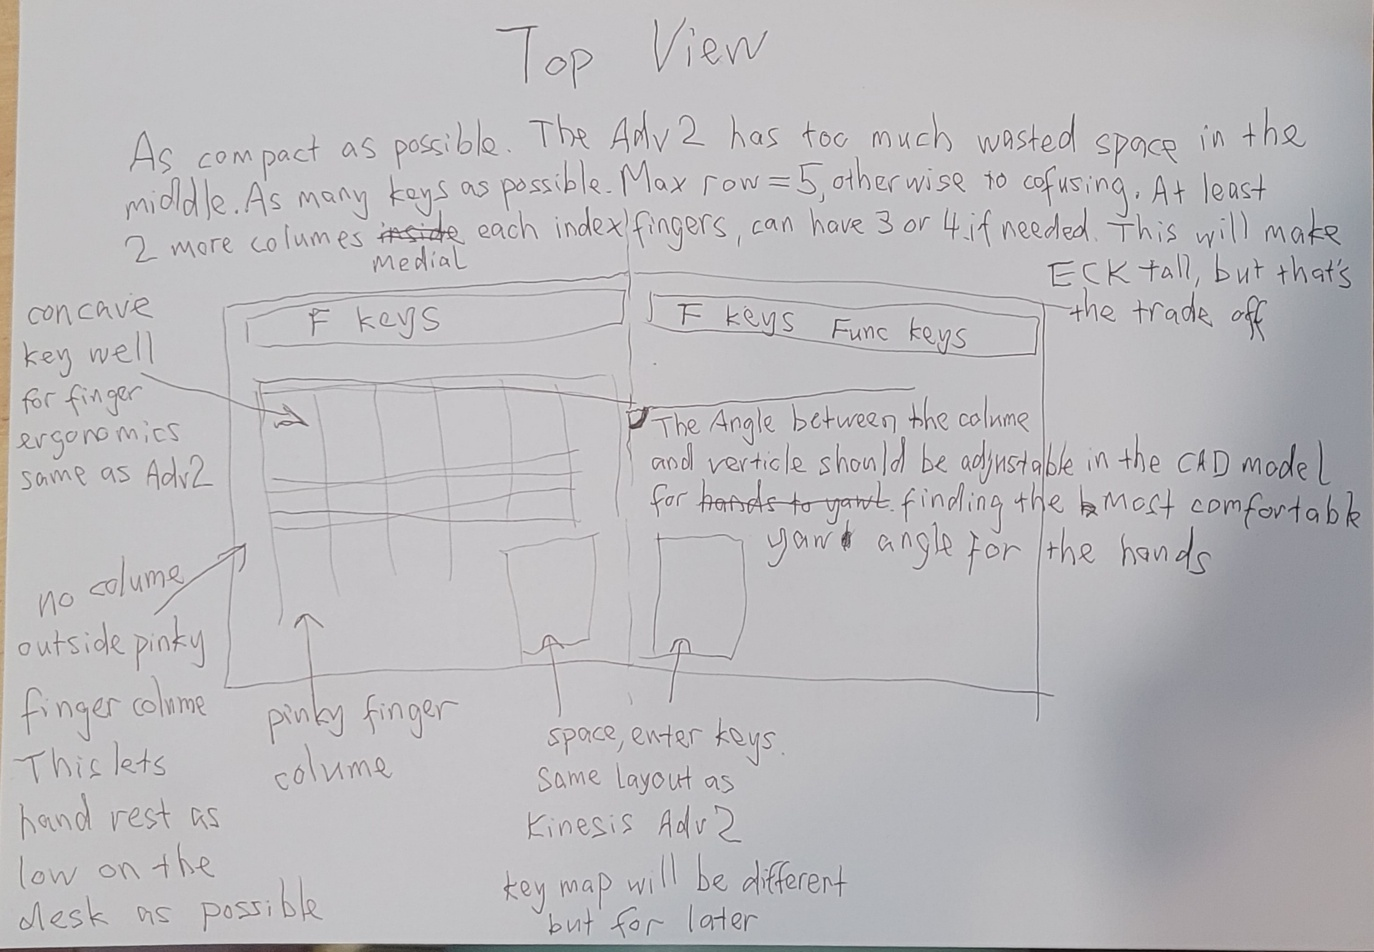 Top View
As compact as possible. The Adv2 has too much wasted space in the
middle. As many keys as possible. Max row=5, otherwise to cofusing. At least
2 more columes inside each index fingers, can have 3 or 4 if needed. This will make
medial
ECK tall, but that's
the trade off
concave
key well
for finger
ergonomics
same as Adv2
F keys
F keys Func keys
The Angle between the colume
and verticle should be adjustable in the CAD model
for hands to yawt. finding the most comfortable
yaw angle for the hands
no colume
outside pinky
finger colume
This lets
hand rest as
low on the
desk as possible
pinky finger
colume
space, enter keys.
Same layout as
Kinesis Adv2
key map will be different
but for later